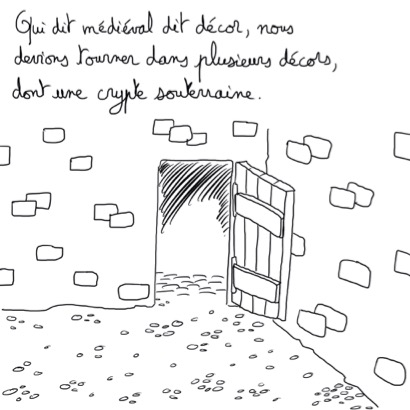 Qui dit médiéval dit décor, nous
devions tourner dans plusieurs décors,
dont une crypte souterraine.